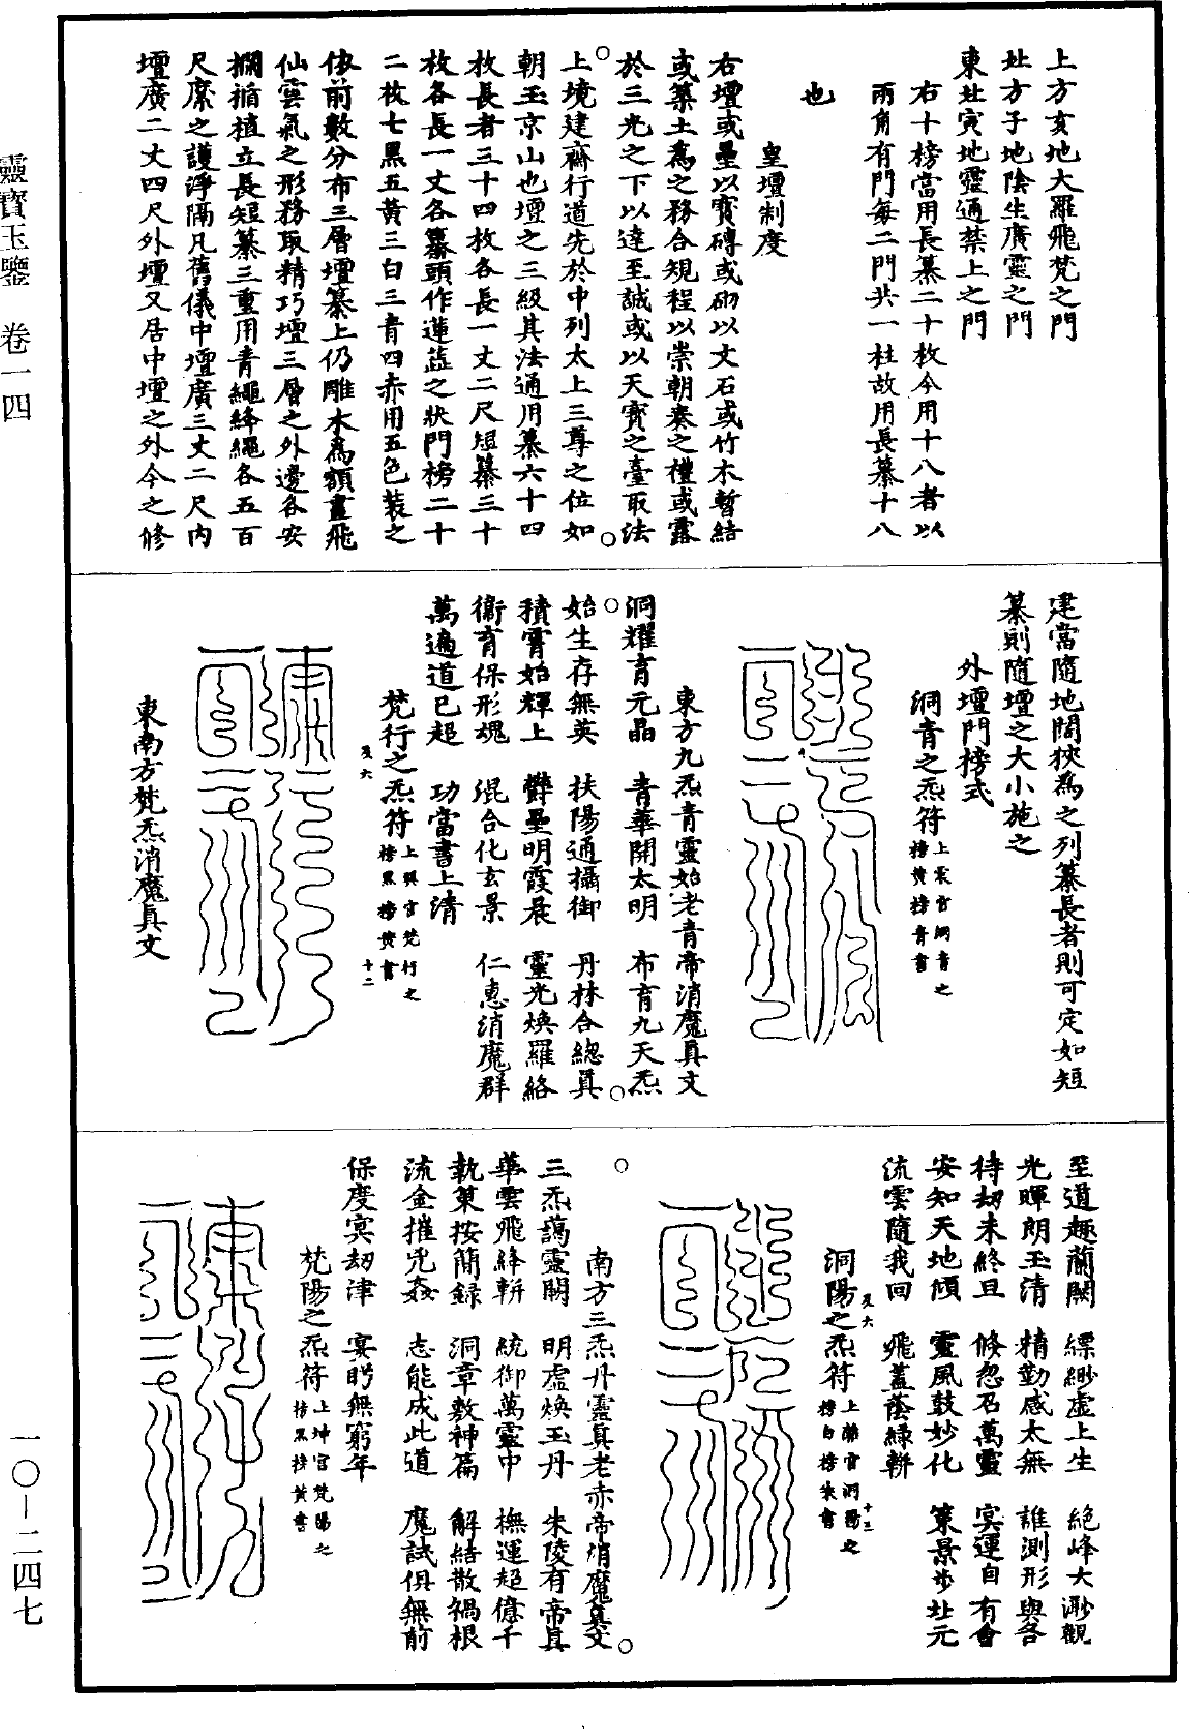 上方亥地大羅飛梵之門
北方子地陰生廣靈之門
東北寅地靈通禁上之門
右十榜當用長纂二十枚今用十八者以
兩角有門每二門共一柱故用長纂十八
也
皇壇制度
右壇或壘以寶磚或砌以文石或竹木暫結
或築土為之務合規程以崇朝奏之禮或露
於三光之下以達至誠或以天寶之臺取法
上境建齋行道先於中列太上三尊之位如
朝玉京山也壇之三級其法通用纂六十四
枚長者三十四枚各長一丈二尺短纂三十
枚各長一丈各纂頭作蓮蕋之狀門榜二十
二枚七黑五黃三白三青四赤用五色裝之
依前數分布三層壇纂上仍雕木為額畫飛
仙雲氣之形務取精巧壇三層之外邊各安
攔楯植立長短纂三重用青繩絳繩各五百
尺縻之護淨隔凡舊儀中壇廣三丈二尺內
壇廣二丈四尺外壇又居中壇之外今之修
建當隨地闊狹為之列纂長者則可定如短
纂則隨壇之大小施之
外壇門榜式
洞青之炁符上震宮洞青之
榜黃榜青書
東方九炁青靈始老青帝消魔真文
洞耀育元晶 青華開太明 布育九天炁
始生存無英 扶陽通攝御 丹林合總真
積霄始輝上 欝壘明霞晨 靈光煥羅絡
衞育保形魂 混合化玄景 仁惠消魔群
萬遍道已超 功當書上清
梵行之炁符上巽宮梵行之
榜黑榜黃書
及六 十二
東南方梵炁消魔真文
至道趣蘭闕 縹緲虛上生 絕峰大渺觀
光暉朗玉清 精勤感太無 誰測形與名
待劫未終旦 倏忽召萬靈 冥運自有會
安知天地傾 靈風鼓妙化 策景步北元
流雲隨我回 飛蓋蔭綠軿
洞陽之炁符上離宮洞陽之
榜白榜朱書
及六 十三
南方三炁丹靈真老赤帝消魔真文
三炁藹靈關 明虛煥玉丹 朱陵有帝真
華雲飛絳軿 統御萬靈中 撫運超億千
執箓按簡錄 洞章敷神篇 解結散禍根
流金摧兇姦 志能成此道 魔試俱無前
保度冥劫津 宴眄無窮年
梵陽之炁符上坤宮梵陽之
榜黑榜黃書
靈寶玉鑒 卷一四
一〇-二四七